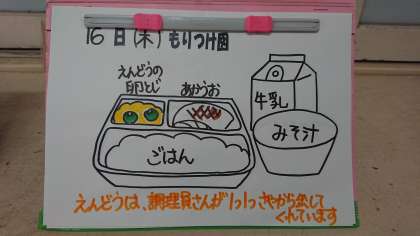 16日(木)もりつけ図
えんどうの
卵とじ
あかうお
牛乳
みそ汁
ごはん
えんどうは、調理員さんが1つ1つさやから出して
くれています